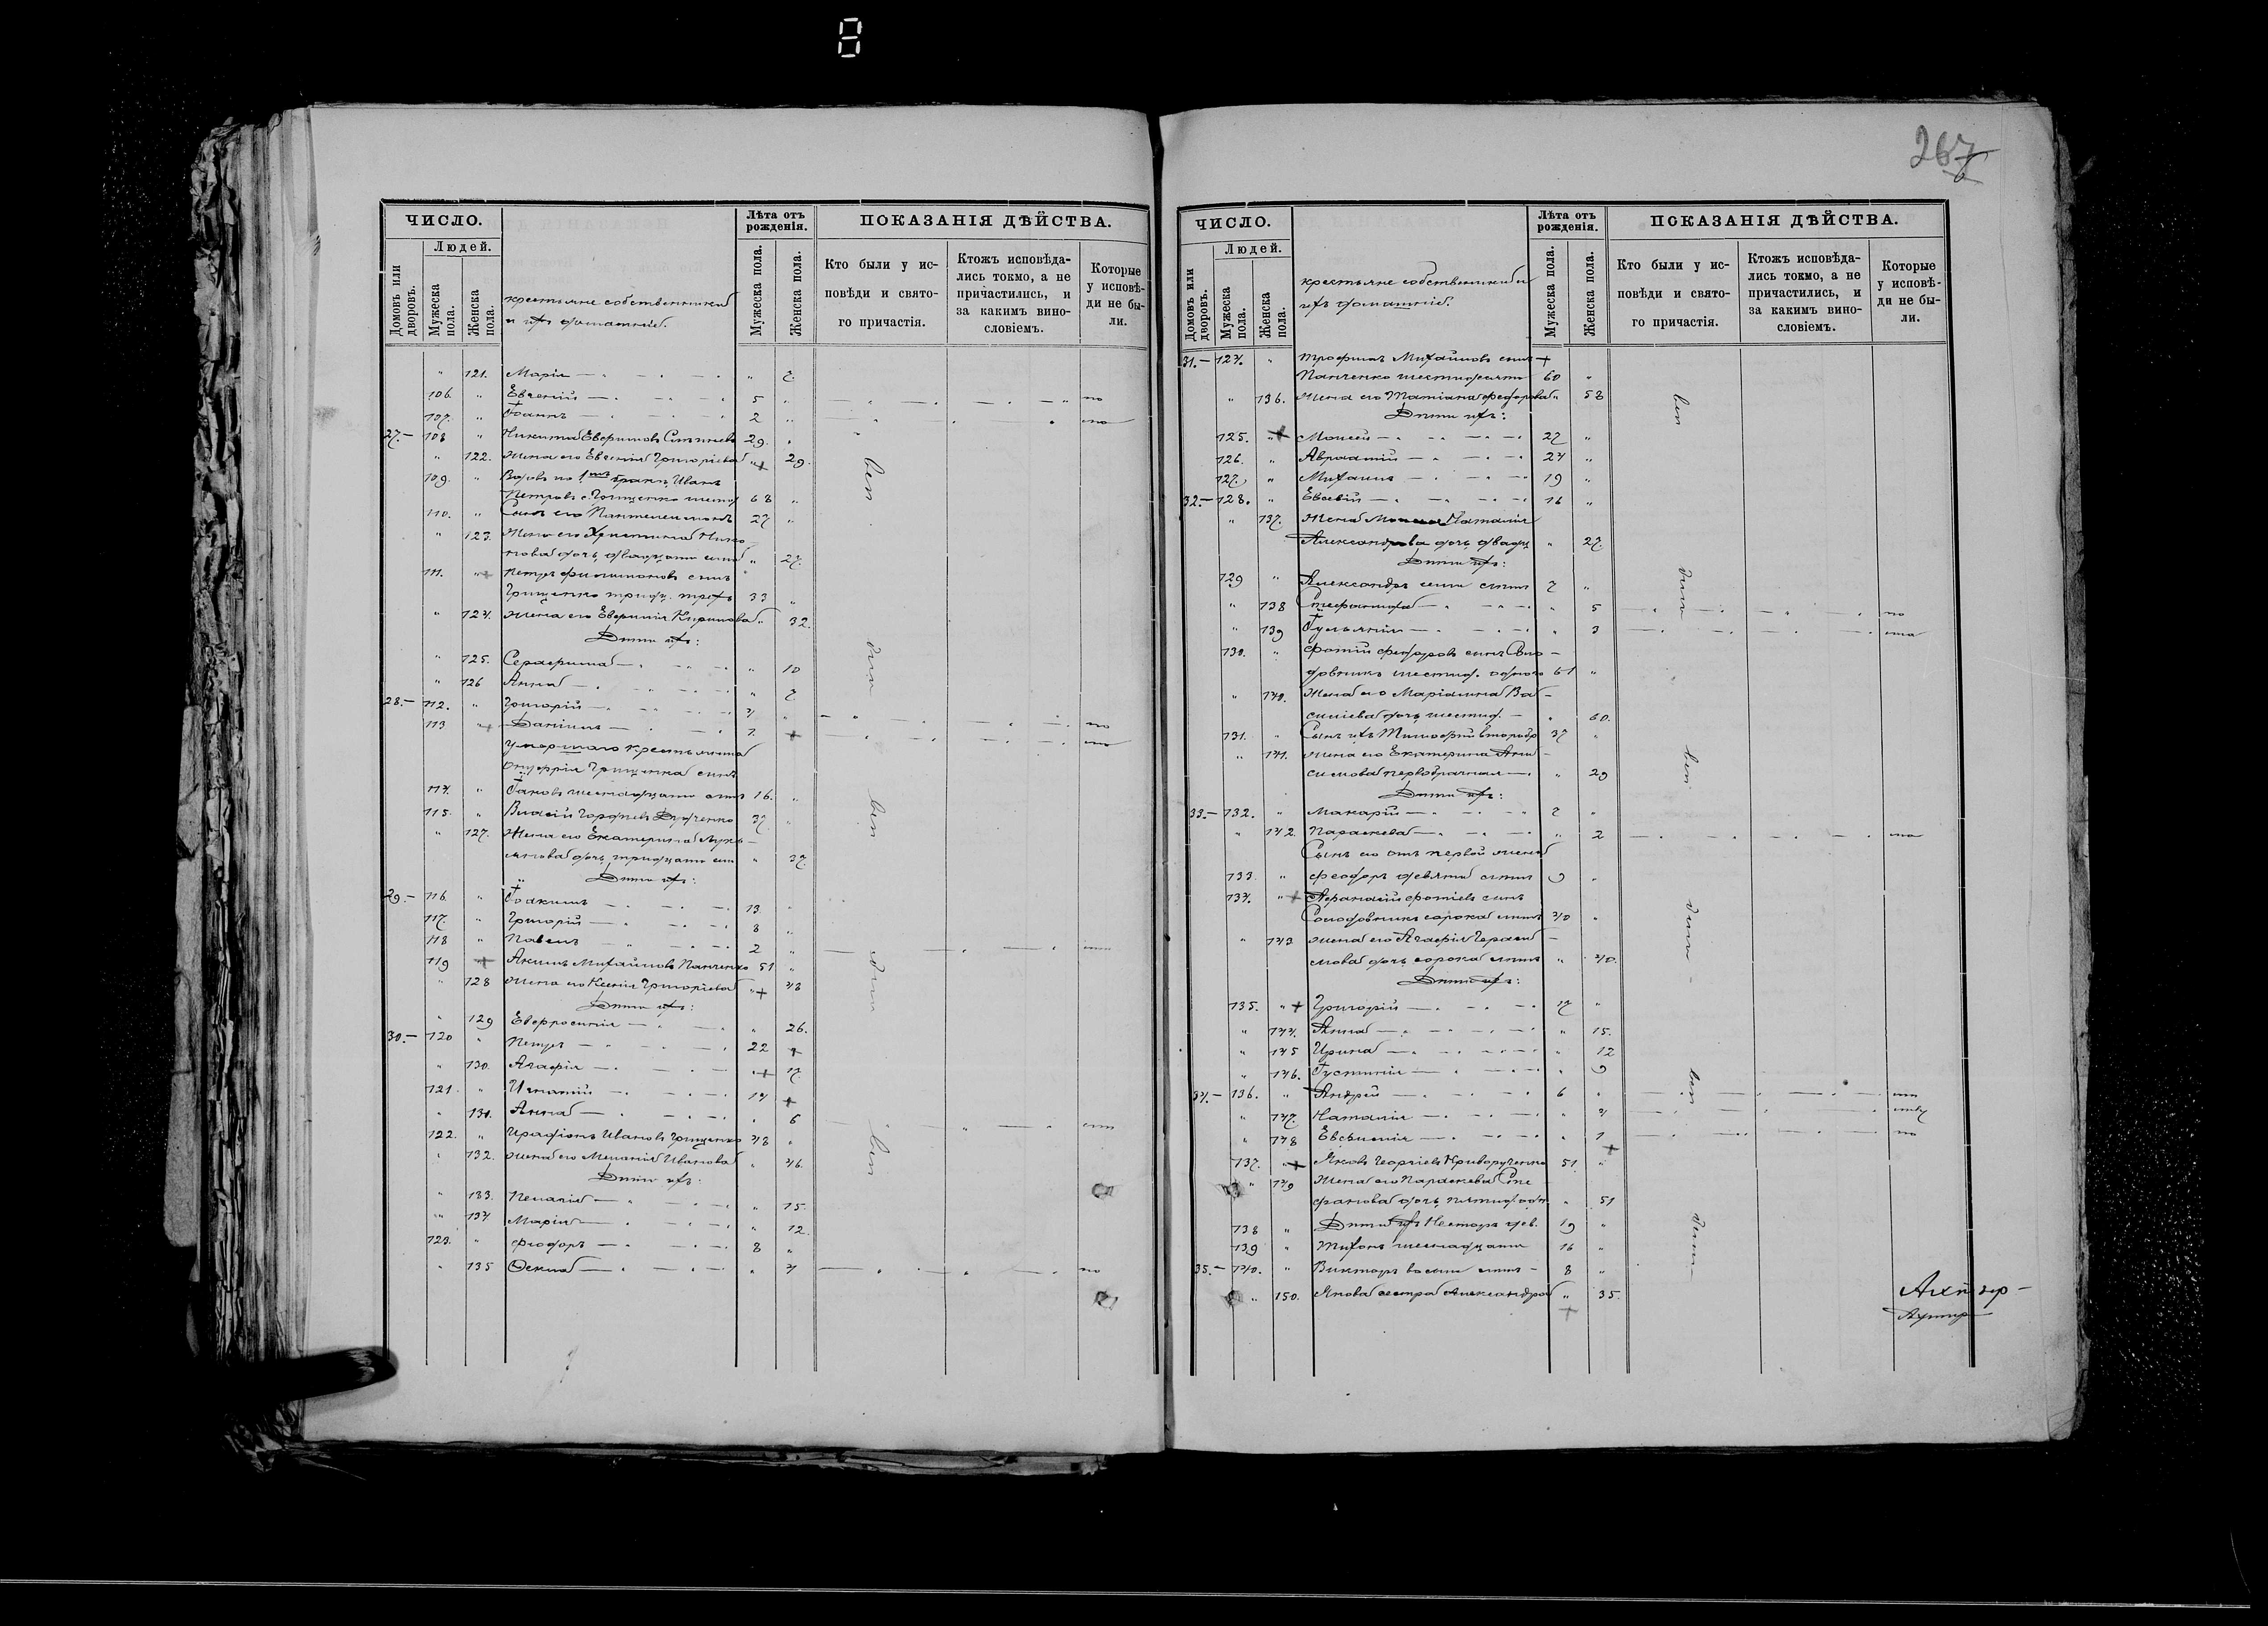 267
ЧИСЛО.
Лѣта отъ рожденія.
ПОКАЗАНІЯ ДѢЙСТВА.
Людей.
Домовъ или дворовъ.
Мужеска пола.
Женска пола.
крестьяне собственники
и ихъ домашніе.
Мужеска пола.
Женска пола.
Кто были у исповѣди и святого причастія.
Ктожъ исповѣдались токмо, а не причастились, и за какимъ винословіемъ.
Которые у исповѣди не были.
" 121. Марія " 7
106. " Евгеній 5 "
107. " Іоаннъ 2 "
27. 108 " Никита 29. "
" 122. Жена его Евгенія Григоріева " 29.
109. " Вдовъ по 1 бракѣ Иванъ
Петровъ с. Грищенко 68 "
110. " Сынъ его Пантелеимонъ 27 "
" 123. Жена его Христина
дочь двадцати семи " 27.
111. " Петръ Филимоновъ сынъ
Грищенко тридц. трехъ 33 "
" 124. Жена его Кирилова " 32.
Дѣти ихъ:
" 125. Серафима " 10
" 126 Анна " 7
28. 112. " Григорій 4 "
113 " Даніилъ 1.
умершаго крестьянина
Онуфрія Грищенка сынъ
114. " Іаковъ шестнадцати лѣтъ 16. "
115. " Власій Гордіевъ 37 "
" 127. Жена его Екатерина
дочь тридцати сем " 37.
Дѣти ихъ:
29. 116. " Іоакимъ 13. "
117. " Григорій 8 "
118 " Павелъ 2 "
119 Акимъ Михайловъ Панченко 51 "
" 128 Жена его Ксенія Григоріева " 48
Дѣти ихъ:
" 129 Евфросинія " 26.
30. 120 " Петръ 22
" 130. Агафія " 17.
121. " Игнатій 14
" 131. Анна " 6
122. " Иванъ Грищенко 48 "
" 132. Жена его Меланія Иванова " 46.
Дѣти ихъ:
" 133. Пелагія " 15.
" 134 Марія " 12.
123. " Феодоръ 8 "
" 135 Фекла " 4
ЧИСЛО.
Лѣта отъ рожденія.
ПОКАЗАНІЯ ДѢЙСТВА.
Людей.
Домовъ или дворовъ.
Мужеска пола.
Женска пола.
крестьяне собственники и
ихъ домашніе.
Мужеска пола.
Женска пола.
Кто были у исповѣди и святого причастія.
Ктожъ исповѣдались токмо, а не причастились, и за какимъ винословіемъ.
Которые у исповѣди не были.
31. 124. " Трофимъ Михайловъ сынъ
Панченко шестидесяти 60 "
" 136. Жена его Татіана Феодорова " 58
Дѣти ихъ:
125. " Моисей 27 "
126. " Авраамій 24 "
127. " Михаилъ 19 "
32. 128. " Евсевій 16 "
" 137. Жена Моисея Наталія
Александрова дочь двадц " 27.
Дѣти ихъ:
129 " Александръ семи лѣтъ 7 "
" 138 Стефанида " 5
" 139 Іуліанія " 3
130. " Фотій Феодоровъ сынъ Соло-
довникъ шестид. одного 61 "
" 140. Жена его Маріанна Ва-
силіева дочь шестид. " 60.
131. " Сынъ ихъ Тимофей второбр 37 "
" 141. Жена его Екатерина Ани-
симова первобрачная " 29
Дѣти ихъ:
33. 132. " Макарій 7 "
" 142. Параскева " 2
Сынъ его отъ первой жены
133. " Феодоръ девяти лѣтъ 9 "
134. " Афанасій Фотіевъ сынъ
Солодовникъ сорока лѣтъ 40 "
" 143 Жена его Агафія Гераси-
мова дочь сорока лѣтъ " 40.
Дѣти ихъ:
135. " Григорій 17 "
" 144. Анна " 15.
" 145 Ирина " 12
" 146. Іустинія " 9
34. 136. " Андрей 6 "
" 147. Наталія " 4
" 148 Евфимія " 1
137. " Яковъ Георгіевъ Криворученко 51. "
" 149 Жена его Параскева Сте-
фанова дочь пятид. одн " 51
138 " Дѣти ихъ Несторъ дев. 19 "
139 " Тихонъ шестнадцати 16 "
35. 140. " Викторъ восьми лѣтъ 8 "
" 150. Якова сестра Александра " 35.